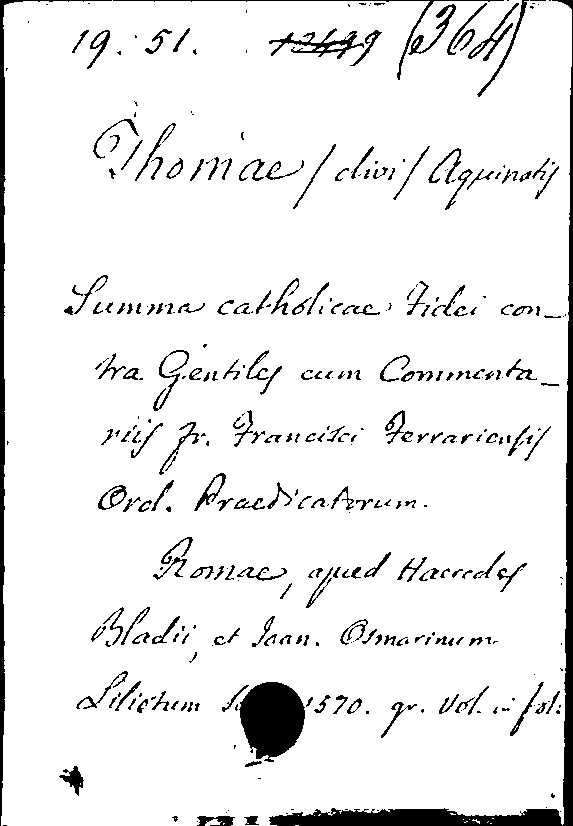 19. 51. 13499 (364)
Thomae / divi / Aquinatis
Summa catholicae Fidei con_
tra Gentiles cum Commenta_
riis fr. Francisci Ferrariensis
Ord. Praedicatorum.
Romae, apud Haeredes
Bladii, et Ioan. Osmarinum
Liliotum 1570. gr. Vol. in fol.